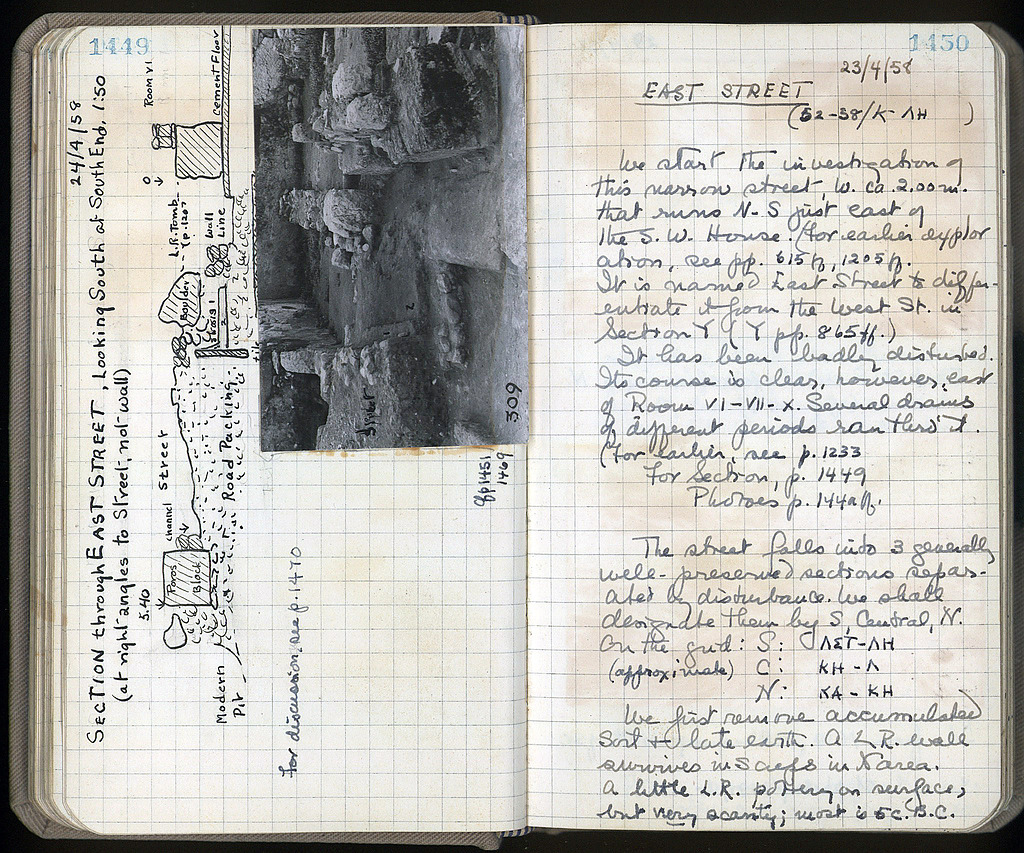 1449
24/4/58
SECTION through EAST STREET, Looking South at South End. 1:50
(at right angles to Street, not wall)
5.40
Poros
Block
channel
Street
Boulder
L.R. Tomb
(p. 1207
0
Room VI
Wall
Line
Cement Floor
Modern
Pit
Road Packing
for discussion, see p. 1470
309
p 1451
1469
1450
23/4/58
EAST STREET
(52-58/K-ΛΗ )
We start the investigation of
this narrow street, w. ca. 2.00 m.
that runs N-S just east of
the S.W. House. (for earlier explor
ation, see pp. 615ff, 1205ff.
It is named East Street to differ-
entiate it from the West St. in
Section Y (Y pp. 865ff.)
It has been badly disturbed.
Its course is clear, however, east
of Room VI-VII-X. Several drains
of different periods ran thro' it.
(For earlier, see p. 1233
For Section, p. 1449
Photoes p. 144
The street falls into 3 generally
well-preserved sections separ-
ated by disturbance. We shall
designate them by S, Central, N.
On the grid: S: ΛΣΤ-ΛΗ
(approximate) C: ΚΗ-Λ
N: ΚΑ-ΚΗ
We first remove accumulated
soil & late earth. A L.R. wall
survives in in N area.
A little L.R. pottery on surface,
but very scanty; most is 5c. B.C.